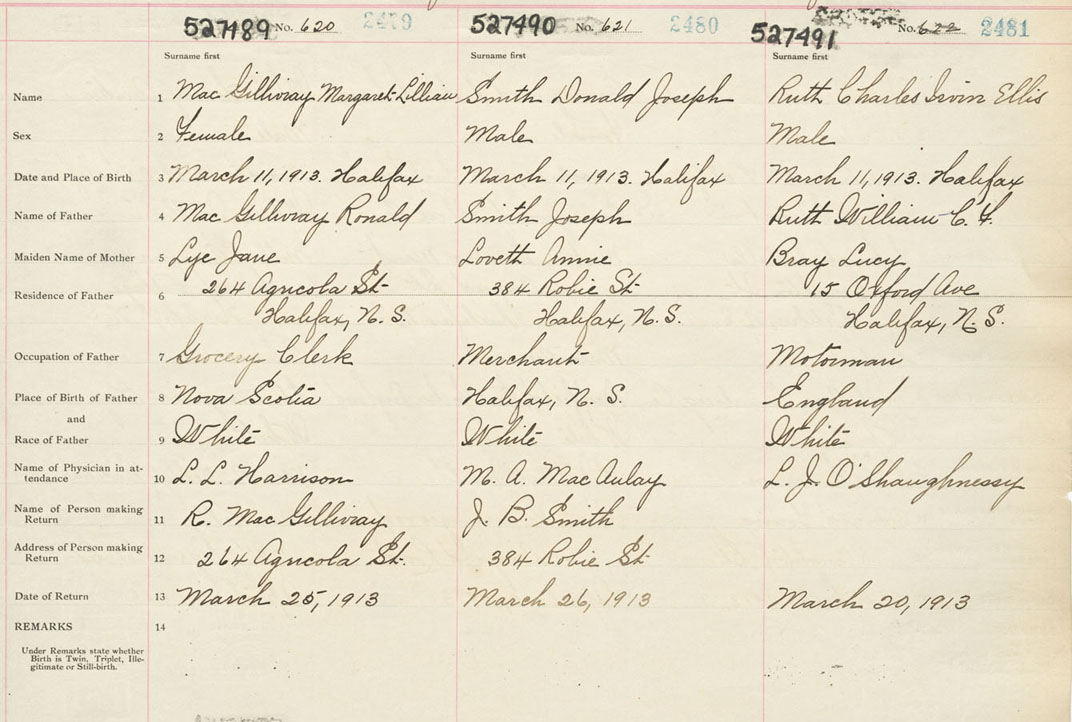 527489 No. 620 2479 527490 No. 621 2480 527491 No. 622 2481
Surname first Surname first Surname first
Name 1 Mac Gillivray Margaret Lillian Smith Donald Joseph Ruth Charles Irvin Ellis
Sex 2 Female Male Male
Date and Place of Birth 3 March 11, 1913. Halifax March 11, 1913. Halifax March 11, 1913. Halifax
Name of Father 4 Mac Gillivray Ronald Smith Joseph Ruth William C. F.
Maiden Name of Mother 5 Lye Jane Loveth Annie Bray Lucy
264 Agricola St 384 Robie St 15 Oxford Ave
Residence of Father 6
Halifax, N. S. Halifax, N. S. Halifax, N. S.
Occupation of Father 7 Grocery Clerk Merchant Motorman
Place of Birth of Father 8 Nova Scotia Halifax, N. S. England
and
Race of Father 9 White White White
Name of Physician in at-
tendance 10 L. L. Harrison M. A. Mac Aulay L. J. O'Shaughnessy
Name of Person making
Return 11 R. Mac Gillivray J. B. Smith
Address of Person making
Return 12 264 Agricola St. 384 Robie St
Date of Return 13 March 25, 1913 March 26, 1913 March 20, 1913
REMARKS 14
Under Remarks state whether
Birth is Twin, Triplet, Ille-
gitimate or Still-birth.